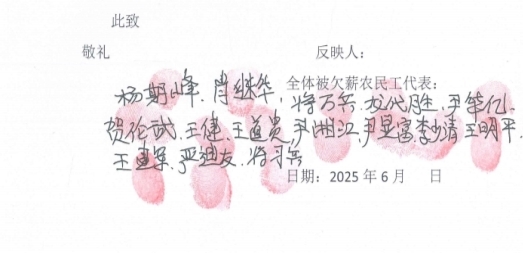 此致
敬礼 反映人：
全体被欠薪农民工代表：
杨期峰、肖继华、蒋万兵、龙代胜、尹华亿、
贺伦武、王健、王道贵、尹湘江、尹显富、李沙清、王明平、
王建军、严迎友、蒋习兵
日期：2025年6月 日